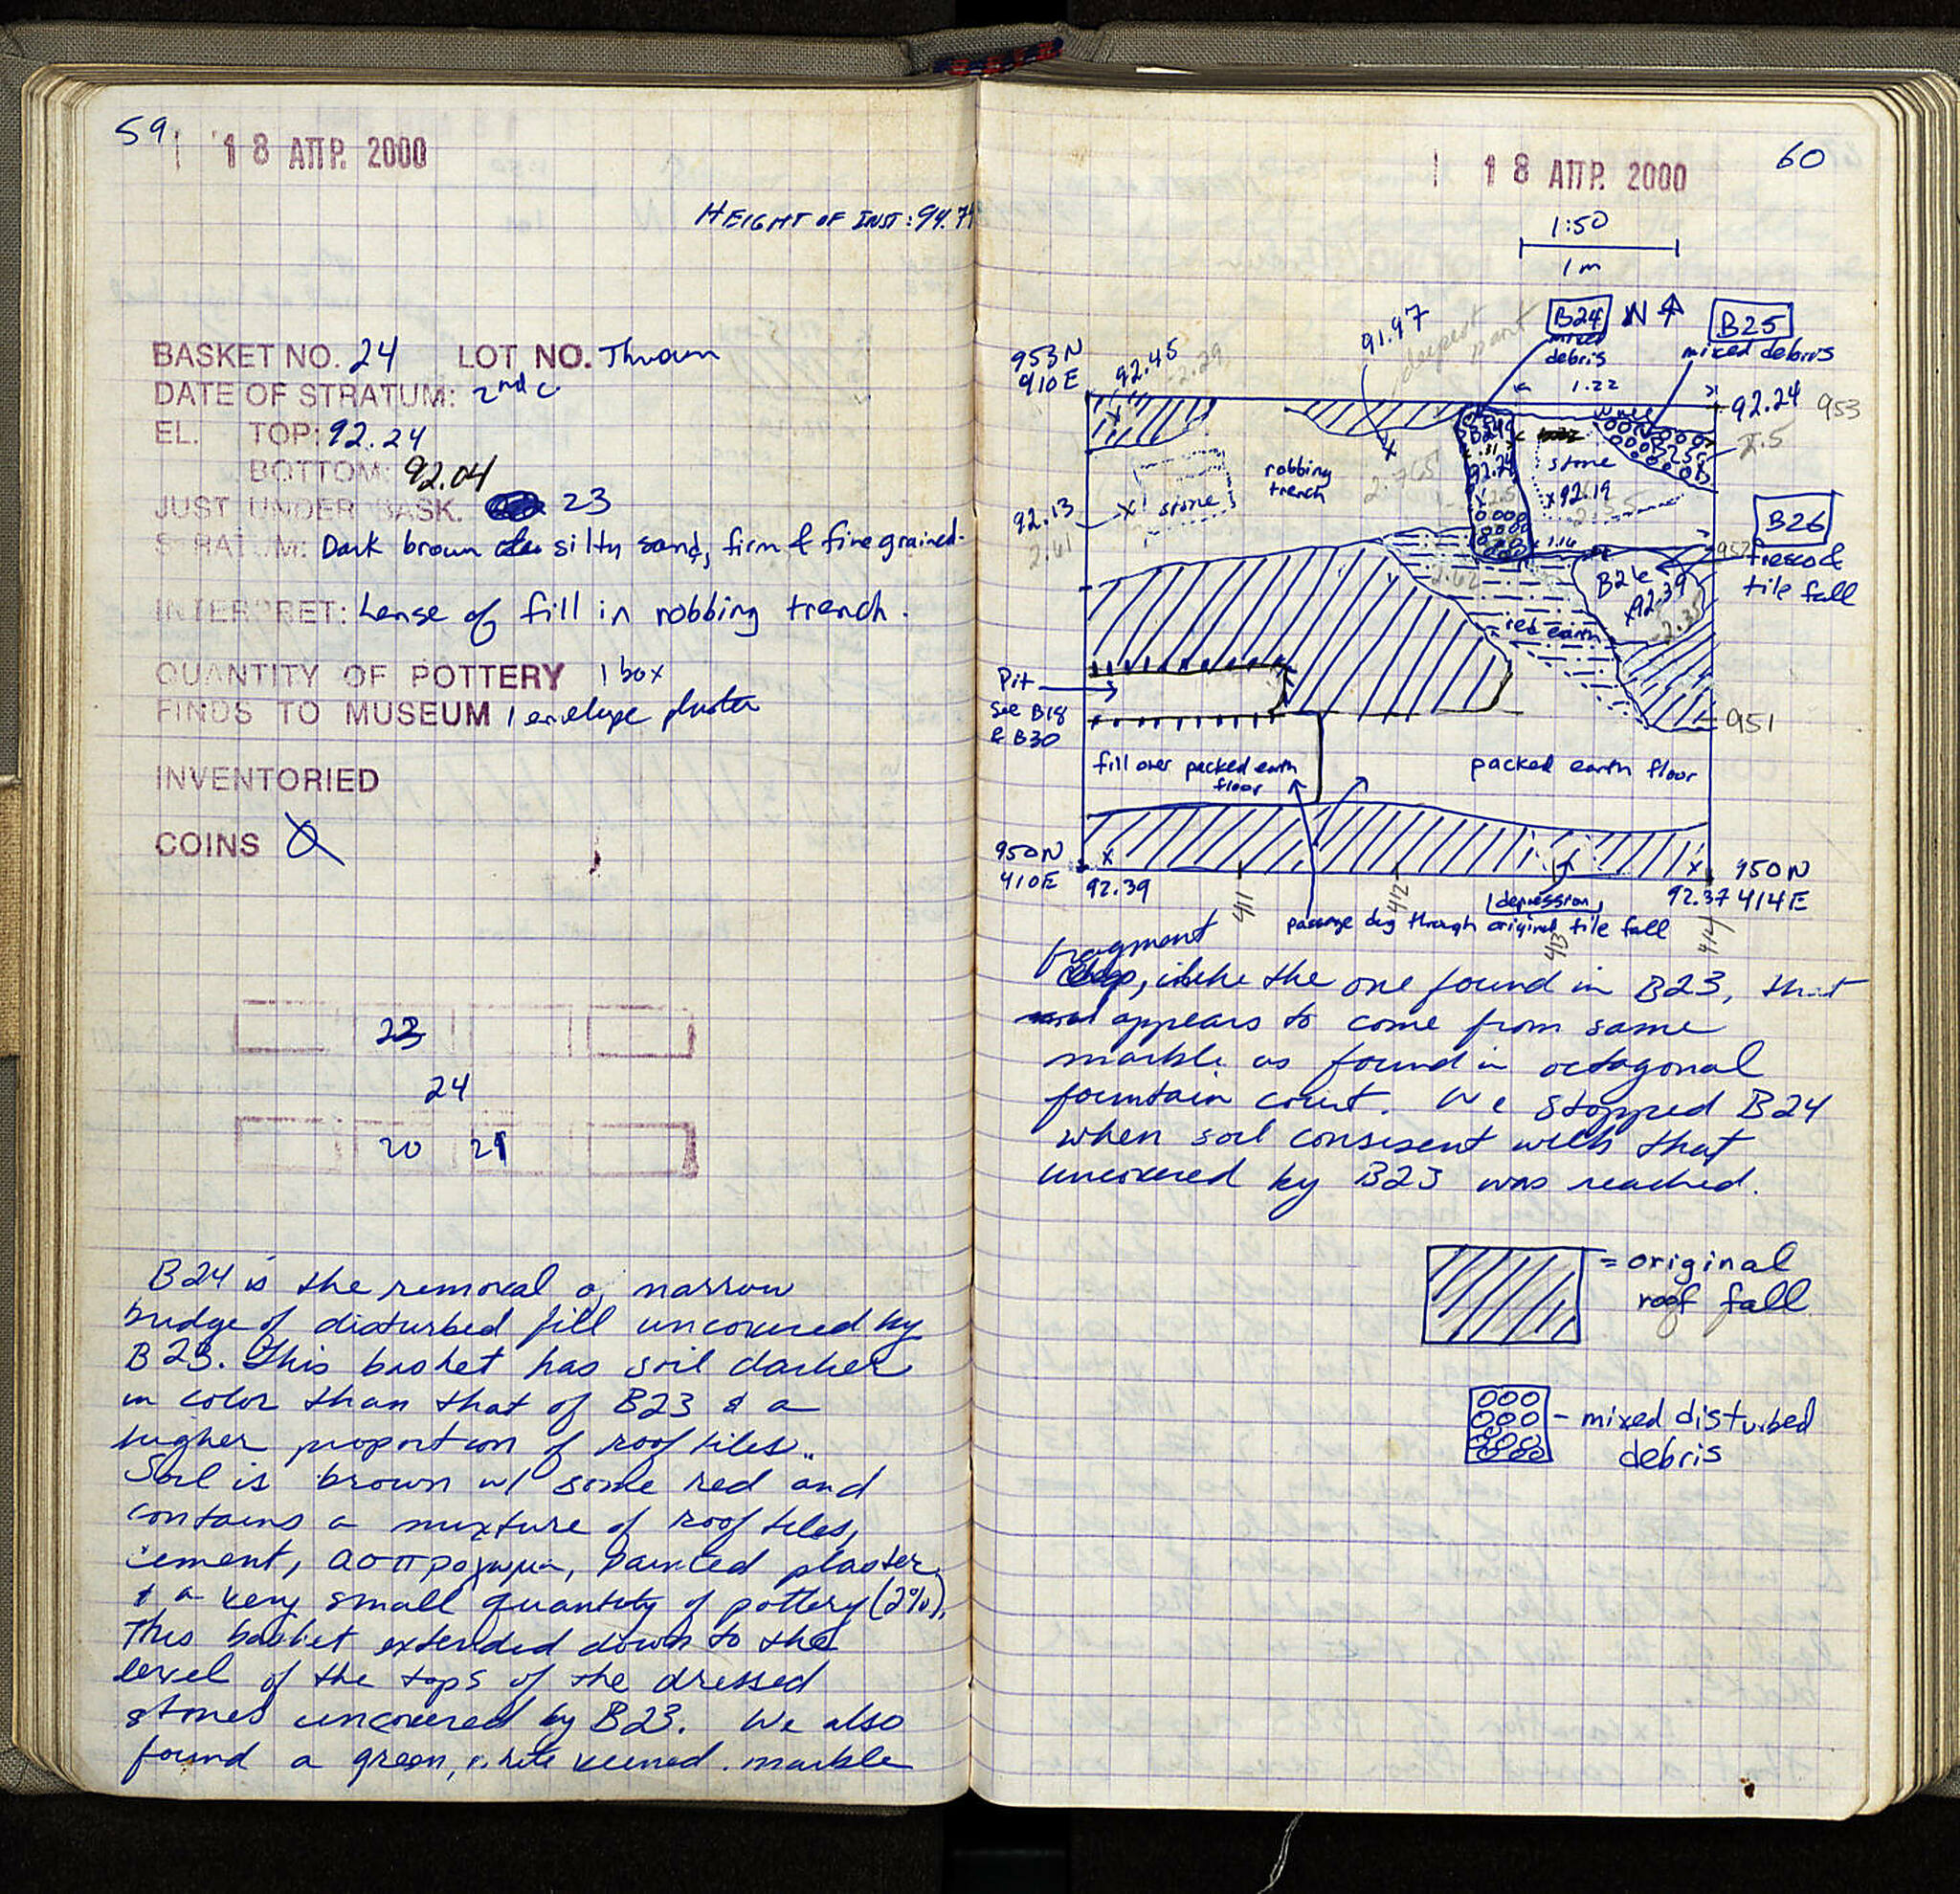 59
18 ΑΠΡ. 2000
HEIGHT OF INST: 94.74
BASKET NO. 24 LOT NO. Thrown
DATE OF STRATUM: 2nd c
EL. TOP: 92.24
BOTTOM: 92.04
JUST UNDER BASK. 23
STRATUM: Dark brown silty sand, firm & fine grained.
INTERPRET: Lense of fill in robbing trench.
QUANTITY OF POTTERY 1 box
FINDS TO MUSEUM 1 envelope plaster
INVENTORIED
COINS
23
24
20 21
B24 is the removal of narrow
bridge of disturbed fill uncovered by
B23. This basket has soil darker
in color than that of B23 & a
higher proportion of roof tiles.
Soil is brown w/ some red and
contains a mixture of roof tiles,
cement, ασπροχωμα, painted plaster
& a very small quantity of pottery (2%).
This basket extended down to the
level of the tops of the dressed
stones uncovered by B23. We also
found a green, white veined marble
60
18 ΑΠΡ. 2000
1:50
1 m
B24 N B25
mixed debris
mixed debris
91.97
deepest part
953 N
410 E
92.45
2.29
1.22
92.24 953
2.5
B24
.31
92.24
robbing
trench
2.765
stone
x 92.19
2.55
B25
x stone
92.13
2.61
1.16
952
B26
fresco &
tile fall
B26
x 92.39
2.35
2.62
red earth
Pit
See B18
& B30
951
fill over packed earth
floor
packed earth floor
950 N
410 E
92.39
411
412
413
414
depression
92.37
950 N
414 E
passage dug through original tile fall
fragment
, like the one found in B23, that
appears to come from same
marble as found in octagonal
fountain court. We stopped B24
when soil consisent with that
uncovered by B23 was reached.
= original
roof fall
- mixed disturbed
debris